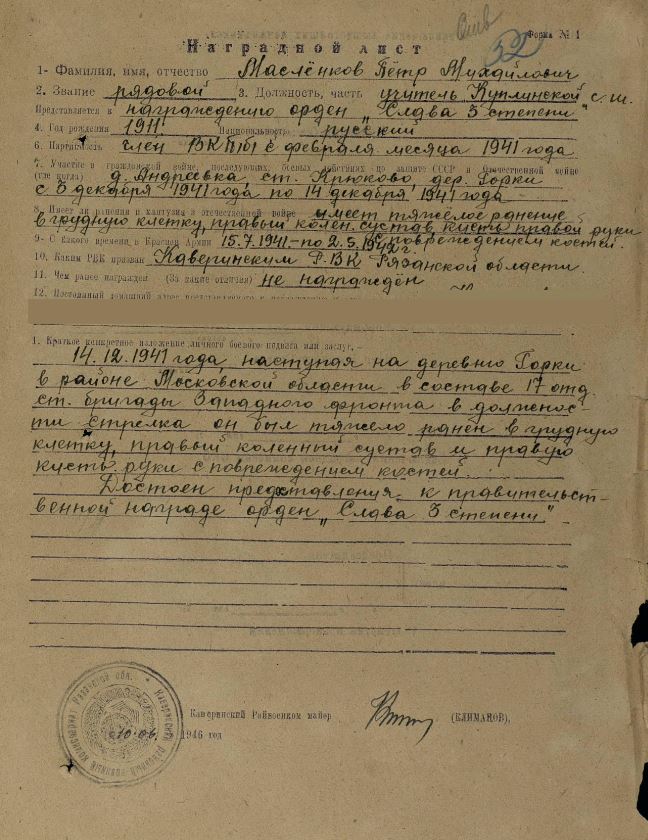 Форма № 1
32
Наградной лист
1- Фамилия, имя, отчество Маслёнков Пётр Михайлович
2. Звание рядовой 3. Должность, часть учитель Куплинской с. ш.
Представляется к награждению орден „Слава 3 степени"
4. Год рождения 1911 Национальность русский
6. Партийность член ВКП(б) с февраля месяца 1941 года
7. Участие в гражданской войне, последующих боевых действиях по защите СССР и Отечественной войне
(где когда) д. Андреевка, ст. Крюково, дер. Горки
с 3 декабря 1941 года по 14 декабря 1941 года
8. Имеет ли ранения и контузии в отечественной войне имеет тяжелое ранение
в грудную клетку, правый колен. сустав, кисть правой руки
с повреждением костей.
9. С какого времени в Красной Армии 15.7.1941 - по 2.5.1942 г.
10. Каким РВК призван Каверинским РВК Рязанской области.
11. Чем ранее награжден (За какие отличия) не награждён
12. Постоянный домашний адрес
1. Краткое конкретное изложение личного боевого подвига или заслуг.
14.12.1941 года, наступая на деревню Горки
в районе Московской области в составе 17 отд.
ст. бригады Западного фронта в должнос-
ти стрелка он был тяжело ранен в грудную
клетку, правый коленный сустав и правую
кисть руки с повреждением костей.
Достоен представления к правительст-
венной награде орден „Слава 3 степени"
Каверинский Райвоенком майор (КЛИМАНОВ),
10.06. 1946 год